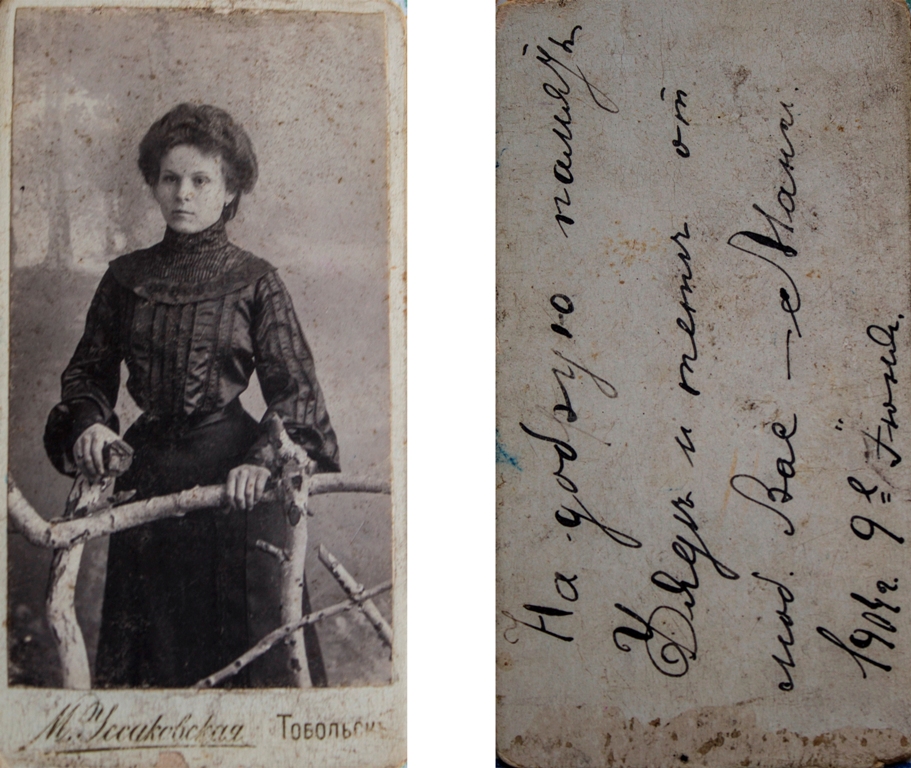 М. Уссаковская Тобольскъ
На добрую память
Дяди и тети от
люб. Вас – е Мани.
1904 г. 9 е Іюня.